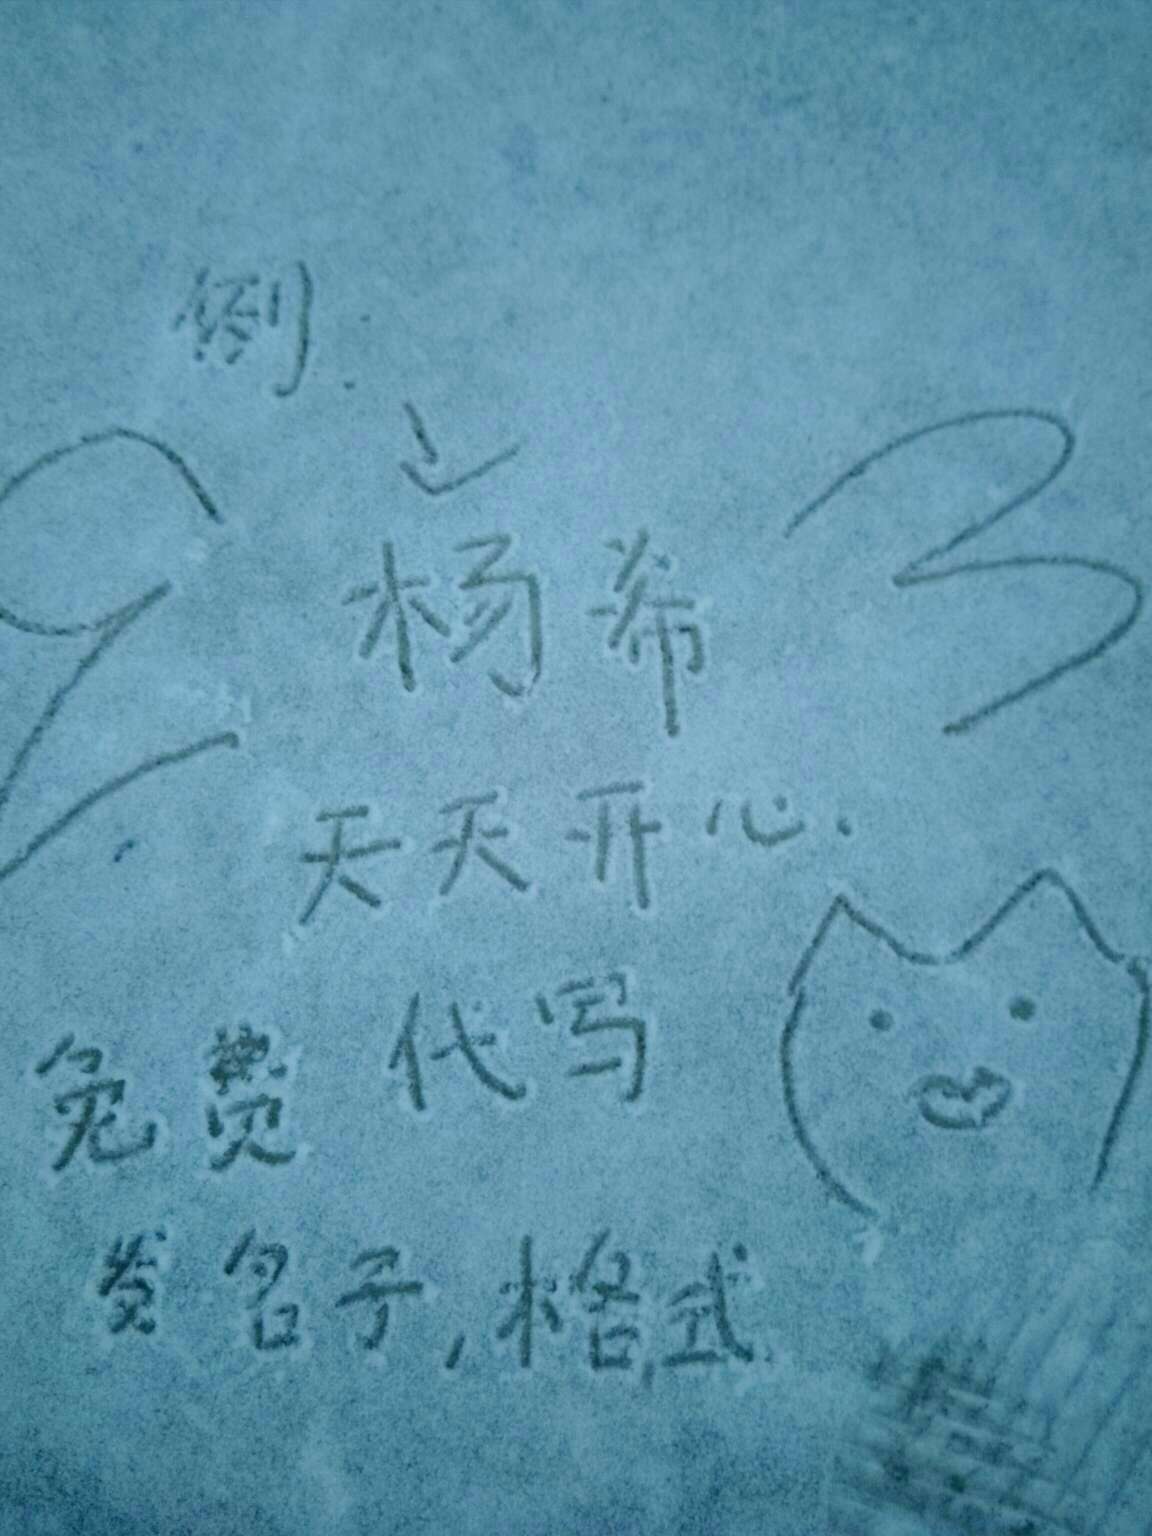 例:
杨希
天天开心.
免费代写
发名子,格式